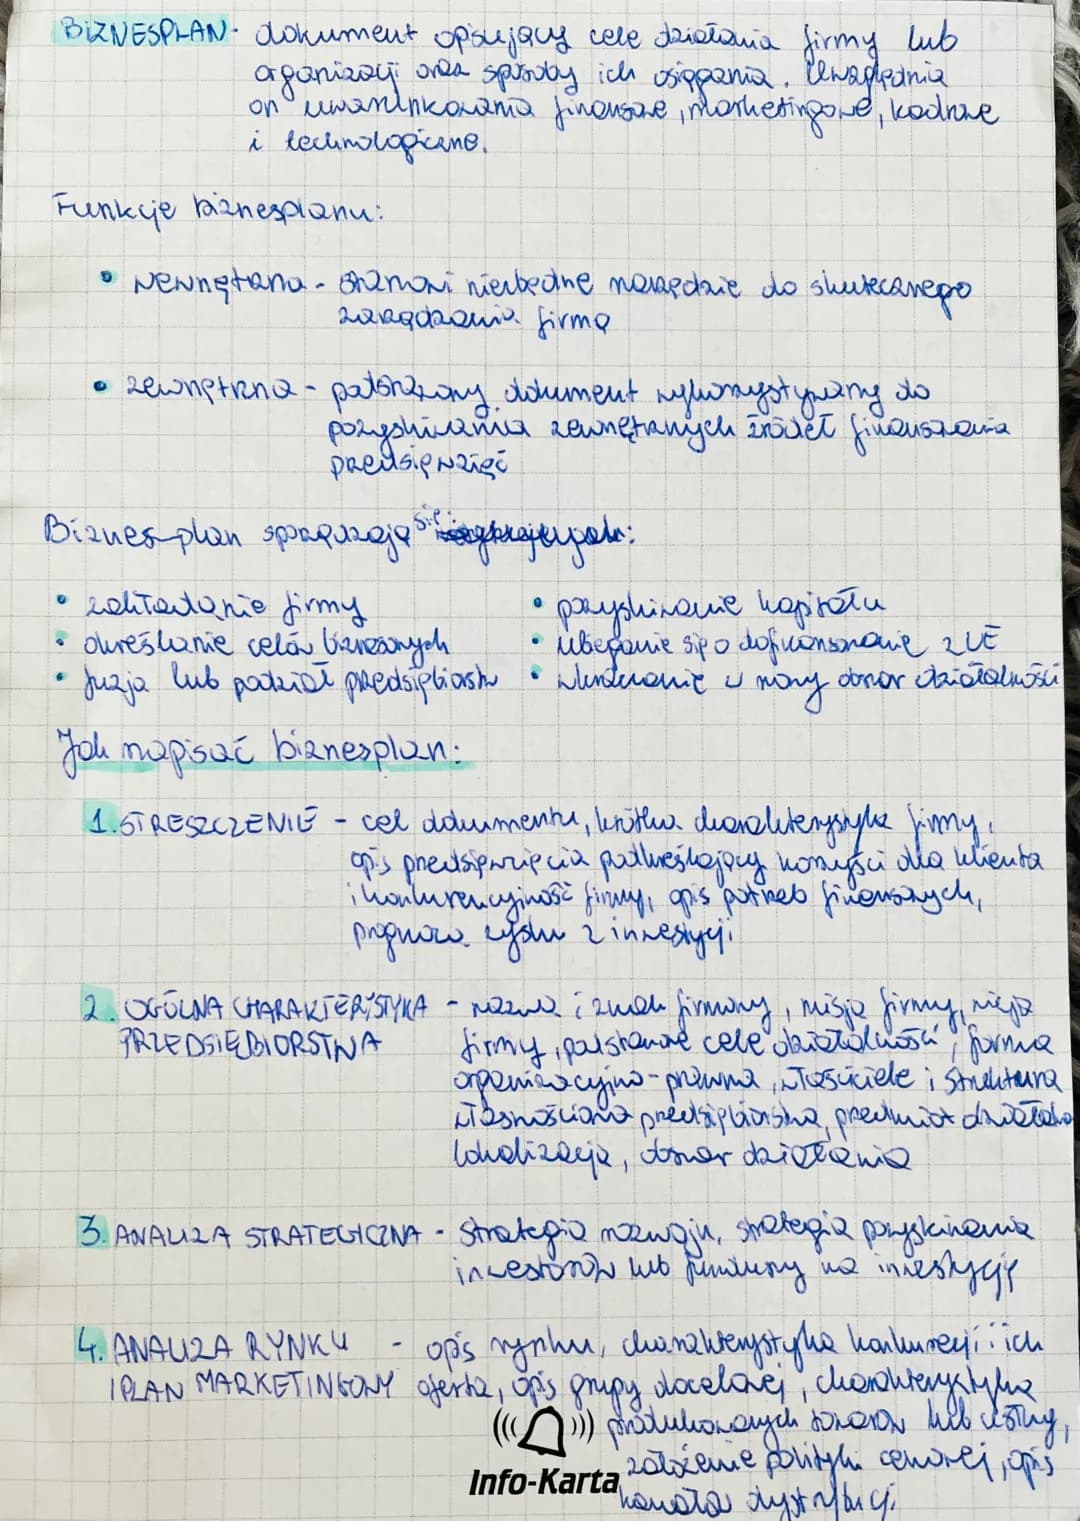 BIZNESPLAN - dokument opisujący cele działania firmy lub
organizacji oraz sposoby ich osiągania. Uwzględnia
on uwarunkowania finansowe, marketingowe, kadrowe
i technologiczne.
Funkcje biznesplanu:
• wewnętrzna - stanowi niezbędne narzędzie do skutecznego
zarządzania firmą
• zewnętrzna - podstawowy dokument wykorzystywany do
pozyskiwania zewnętrznych źródeł finansowania
przedsięwzięć
Biznes-plan sporządzają się:
• zakładanie firmy
• określanie celów biznesowych
• fuzja lub podział przedsiębiorstw
• pozyskiwanie kapitału
• ubieganie się o dofinansowanie z UE
• wkraczanie w nowy obszar działalności
Jak napisać biznesplan:
1. STRESZCZENIE - cel dokumentu, krótka charakterystyka firmy,
opis przedsięwzięcia podkreślający korzyści dla klienta
i konkurencyjność firmy, opis potrzeb finansowych,
prognoza zysku z inwestycji
2. OGÓLNA CHARAKTERYSTYKA - nazwa i znak firmowy, misja firmy, wizja
PRZEDSIĘBIORSTWA firmy, podstawowe cele działalności, forma
organizacyjno-prawna, właściciele i struktura
własnościowa przedsiębiorstwa, przedmiot działania
lokalizacja, obszar działania
3. ANALIZA STRATEGICZNA - strategia rozwoju, strategia pozyskiwania
inwestorów lub funduszy na inwestycję
4. ANALIZA RYNKU - opis rynku, charakterystyka konkurencji i ich
I PLAN MARKETINGOWY oferta, opis grupy docelowej, charakterystyka
produkowanych towarów lub usług,
założenie polityki cenowej, opis
kanału dystrybucji.
Info-Karta